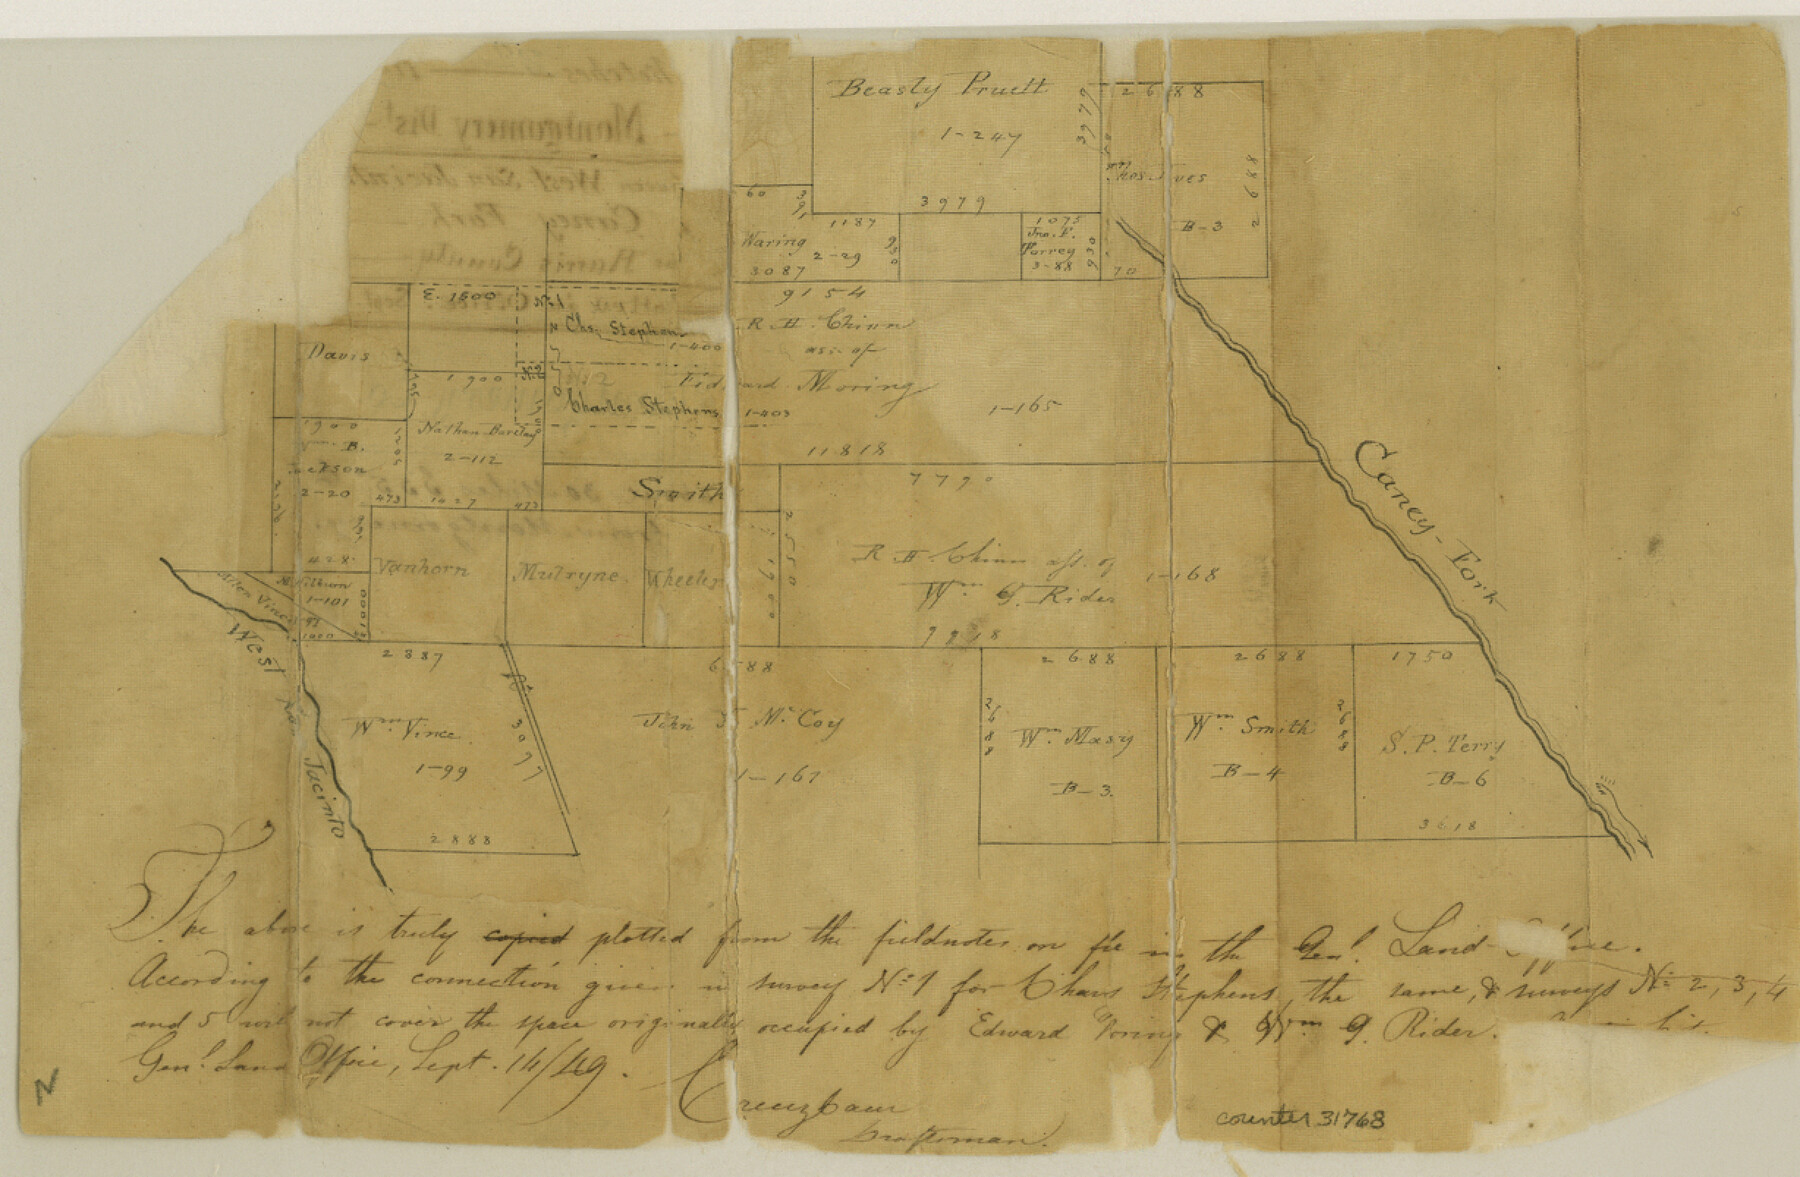 Beasty Pruett
1-247
3979
3979
2688
2688
Thos. Ives
B-3
70
60
1187
Waring
2-29
930
3087
1075
Jno. F.
Torrey
3-88
930
9154
R H Chinn
ass. of
Edward Moring
1-165
11818
E. 1500
No. 1
Chs. Stephens
1-400
No. 2
No 2
Charles Stephens
1-403
Davis
1900
Nathan Barclay
2-112
473
1027
473
1900
B.
1205
2-20
428
Smith
7790
2550
1900
R H Chinn ass. of
Wm G. Rider
1-168
9918
Vanhorn
Mulryne.
Wheeler
Allen Vince
1-101
1000
West San Jacinto
2887
Wm Vince
1-99
3097
2888
6588
John T McCoy
1-167
2688
2688
Wm Massy
B-3.
2688
Wm Smith
2688
B-4
1750
S. P. Terry
B-6
3618
Caney-Fork
The above is truly copied plotted from the fieldnotes on file in the Genl. Land Office.
According to the connection given in survey No. 1 for Chars Stephens, the same, & surveys No 2, 3, 4
and 5 will not cover the space originally occupied by Edward Moring & Wm G. Rider.
Genl. Land Office, Sept. 14/49.
Creuzbaur
Draftsman.
counter 31768
N